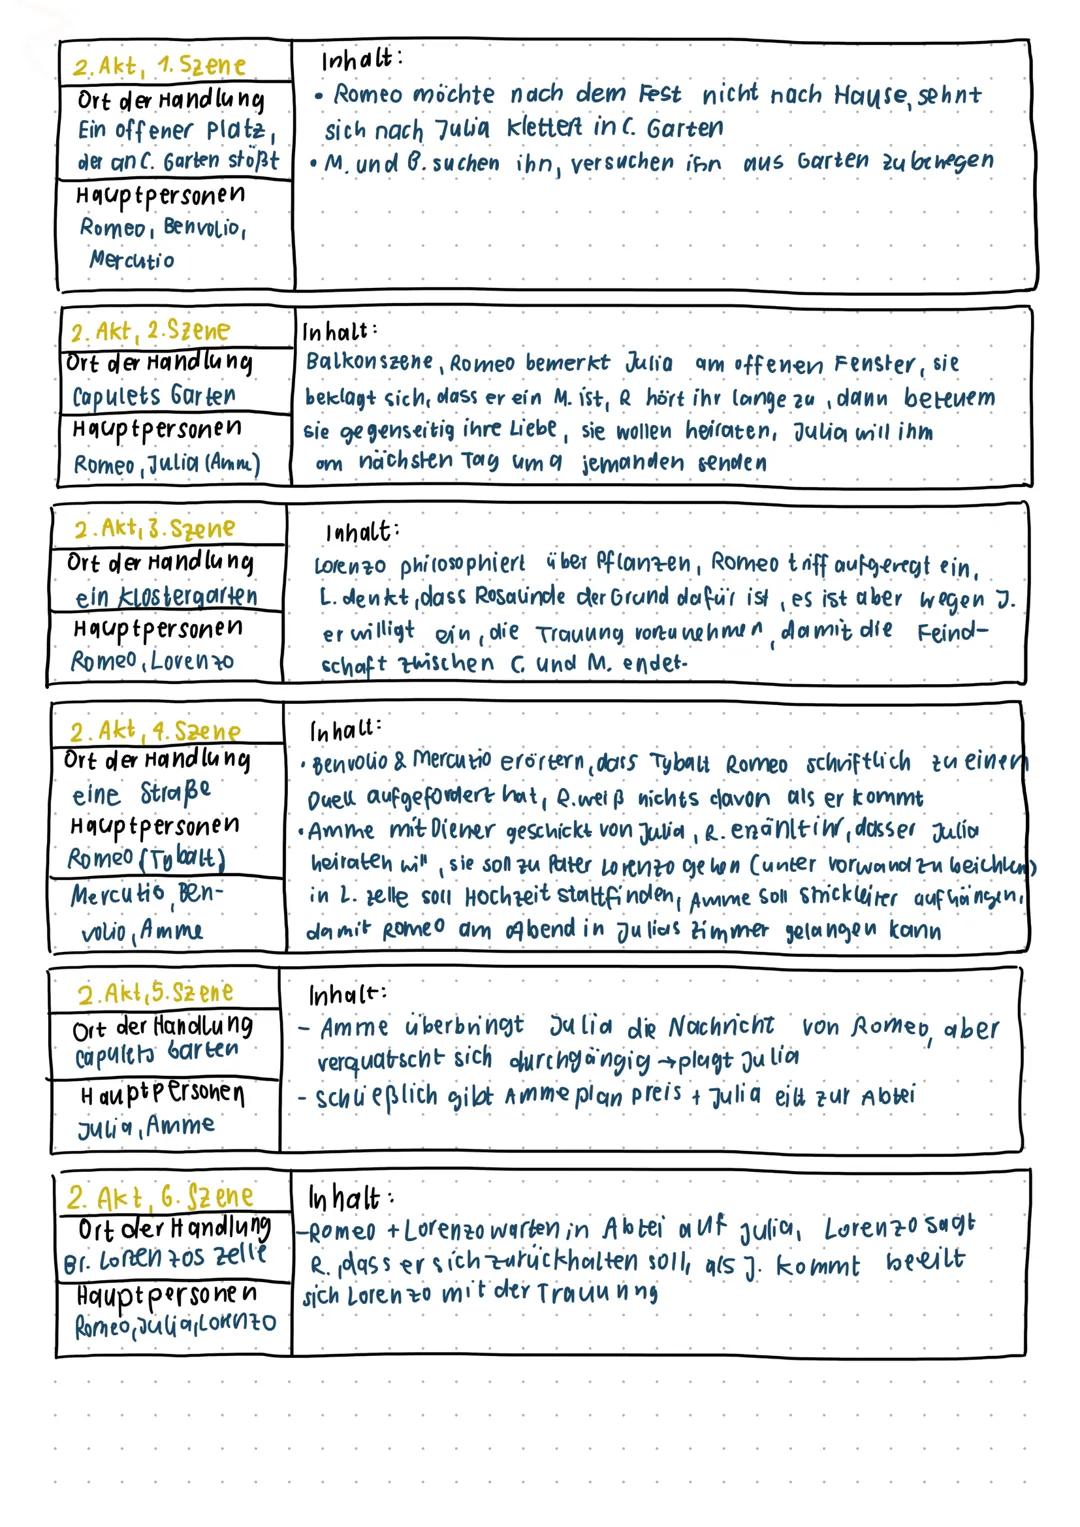 2. Akt, 1. Szene
Ort der Handlung
Ein offener Platz,
der an C. Garten stößt
Hauptpersonen
Romeo, Benvolio,
Mercutio
Inhalt:
• Romeo möchte nach dem Fest nicht nach Hause, sehnt
sich nach Julia klettert in C. Garten
• M. und B. suchen ihn, versuchen ihn aus Garten zu bewegen
2. Akt, 2. Szene
Ort der Handlung
Capulets Garten
Hauptpersonen
Romeo, Julia (Amm.)
Inhalt:
Balkonszene, Romeo bemerkt Julia am offenen Fenster, sie
beklagt sich, dass er ein M. ist, R hört ihr lange zu, dann beteuern
sie gegenseitig ihre Liebe, sie wollen heiraten, Julia will ihm
am nächsten Tag um 9 jemanden senden
2. Akt, 3. Szene
Ort der Handlung
ein Klostergarten
Hauptpersonen
Romeo, Lorenzo
Inhalt:
Lorenzo philosophiert über Pflanzen, Romeo triff aufgeregt ein,
L. denkt, dass Rosalinde der Grund dafür ist, es ist aber wegen J.
er willigt ein, die Trauung vorzunehmen, damit die Feind-
schaft zwischen C. und M. endet.
2. Akt, 4. Szene
Ort der Handlung
eine Straße
Hauptpersonen
Romeo (Tybalt)
Mercutio, Ben-
volio, Amme
Inhalt:
• Benvolio & Mercutio erörtern, dass Tybalt Romeo schriftlich zu einem
Duell aufgefordert hat, R. weiß nichts davon als er kommt
• Amme mit Diener geschickt von Julia, R. erzählt ihr, dass er Julia
heiraten will, sie soll zu Pater Lorenzo gehen (unter Vorwand zu beichten)
in L. Zelle soll Hochzeit stattfinden, Amme soll Strickleiter aufhängen,
damit Romeo am Abend in Julias Zimmer gelangen kann
2. Akt, 5. Szene
Ort der Handlung
Capulets Garten
Hauptpersonen
Julia, Amme
Inhalt:
- Amme überbringt Julia die Nachricht von Romeo, aber
verquatscht sich durchgängig → plagt Julia
- schließlich gibt Amme plan preis + Julia eilt zur Abtei
2. Akt, 6. Szene
Ort der Handlung
Br. Lorenzos Zelle
Hauptpersonen
Romeo, Julia, Lorenzo
Inhalt:
- Romeo + Lorenzo warten in Abtei auf Julia, Lorenzo sagt
R., dass er sich zurückhalten soll, als J. kommt beeilt
sich Lorenzo mit der Trauunng